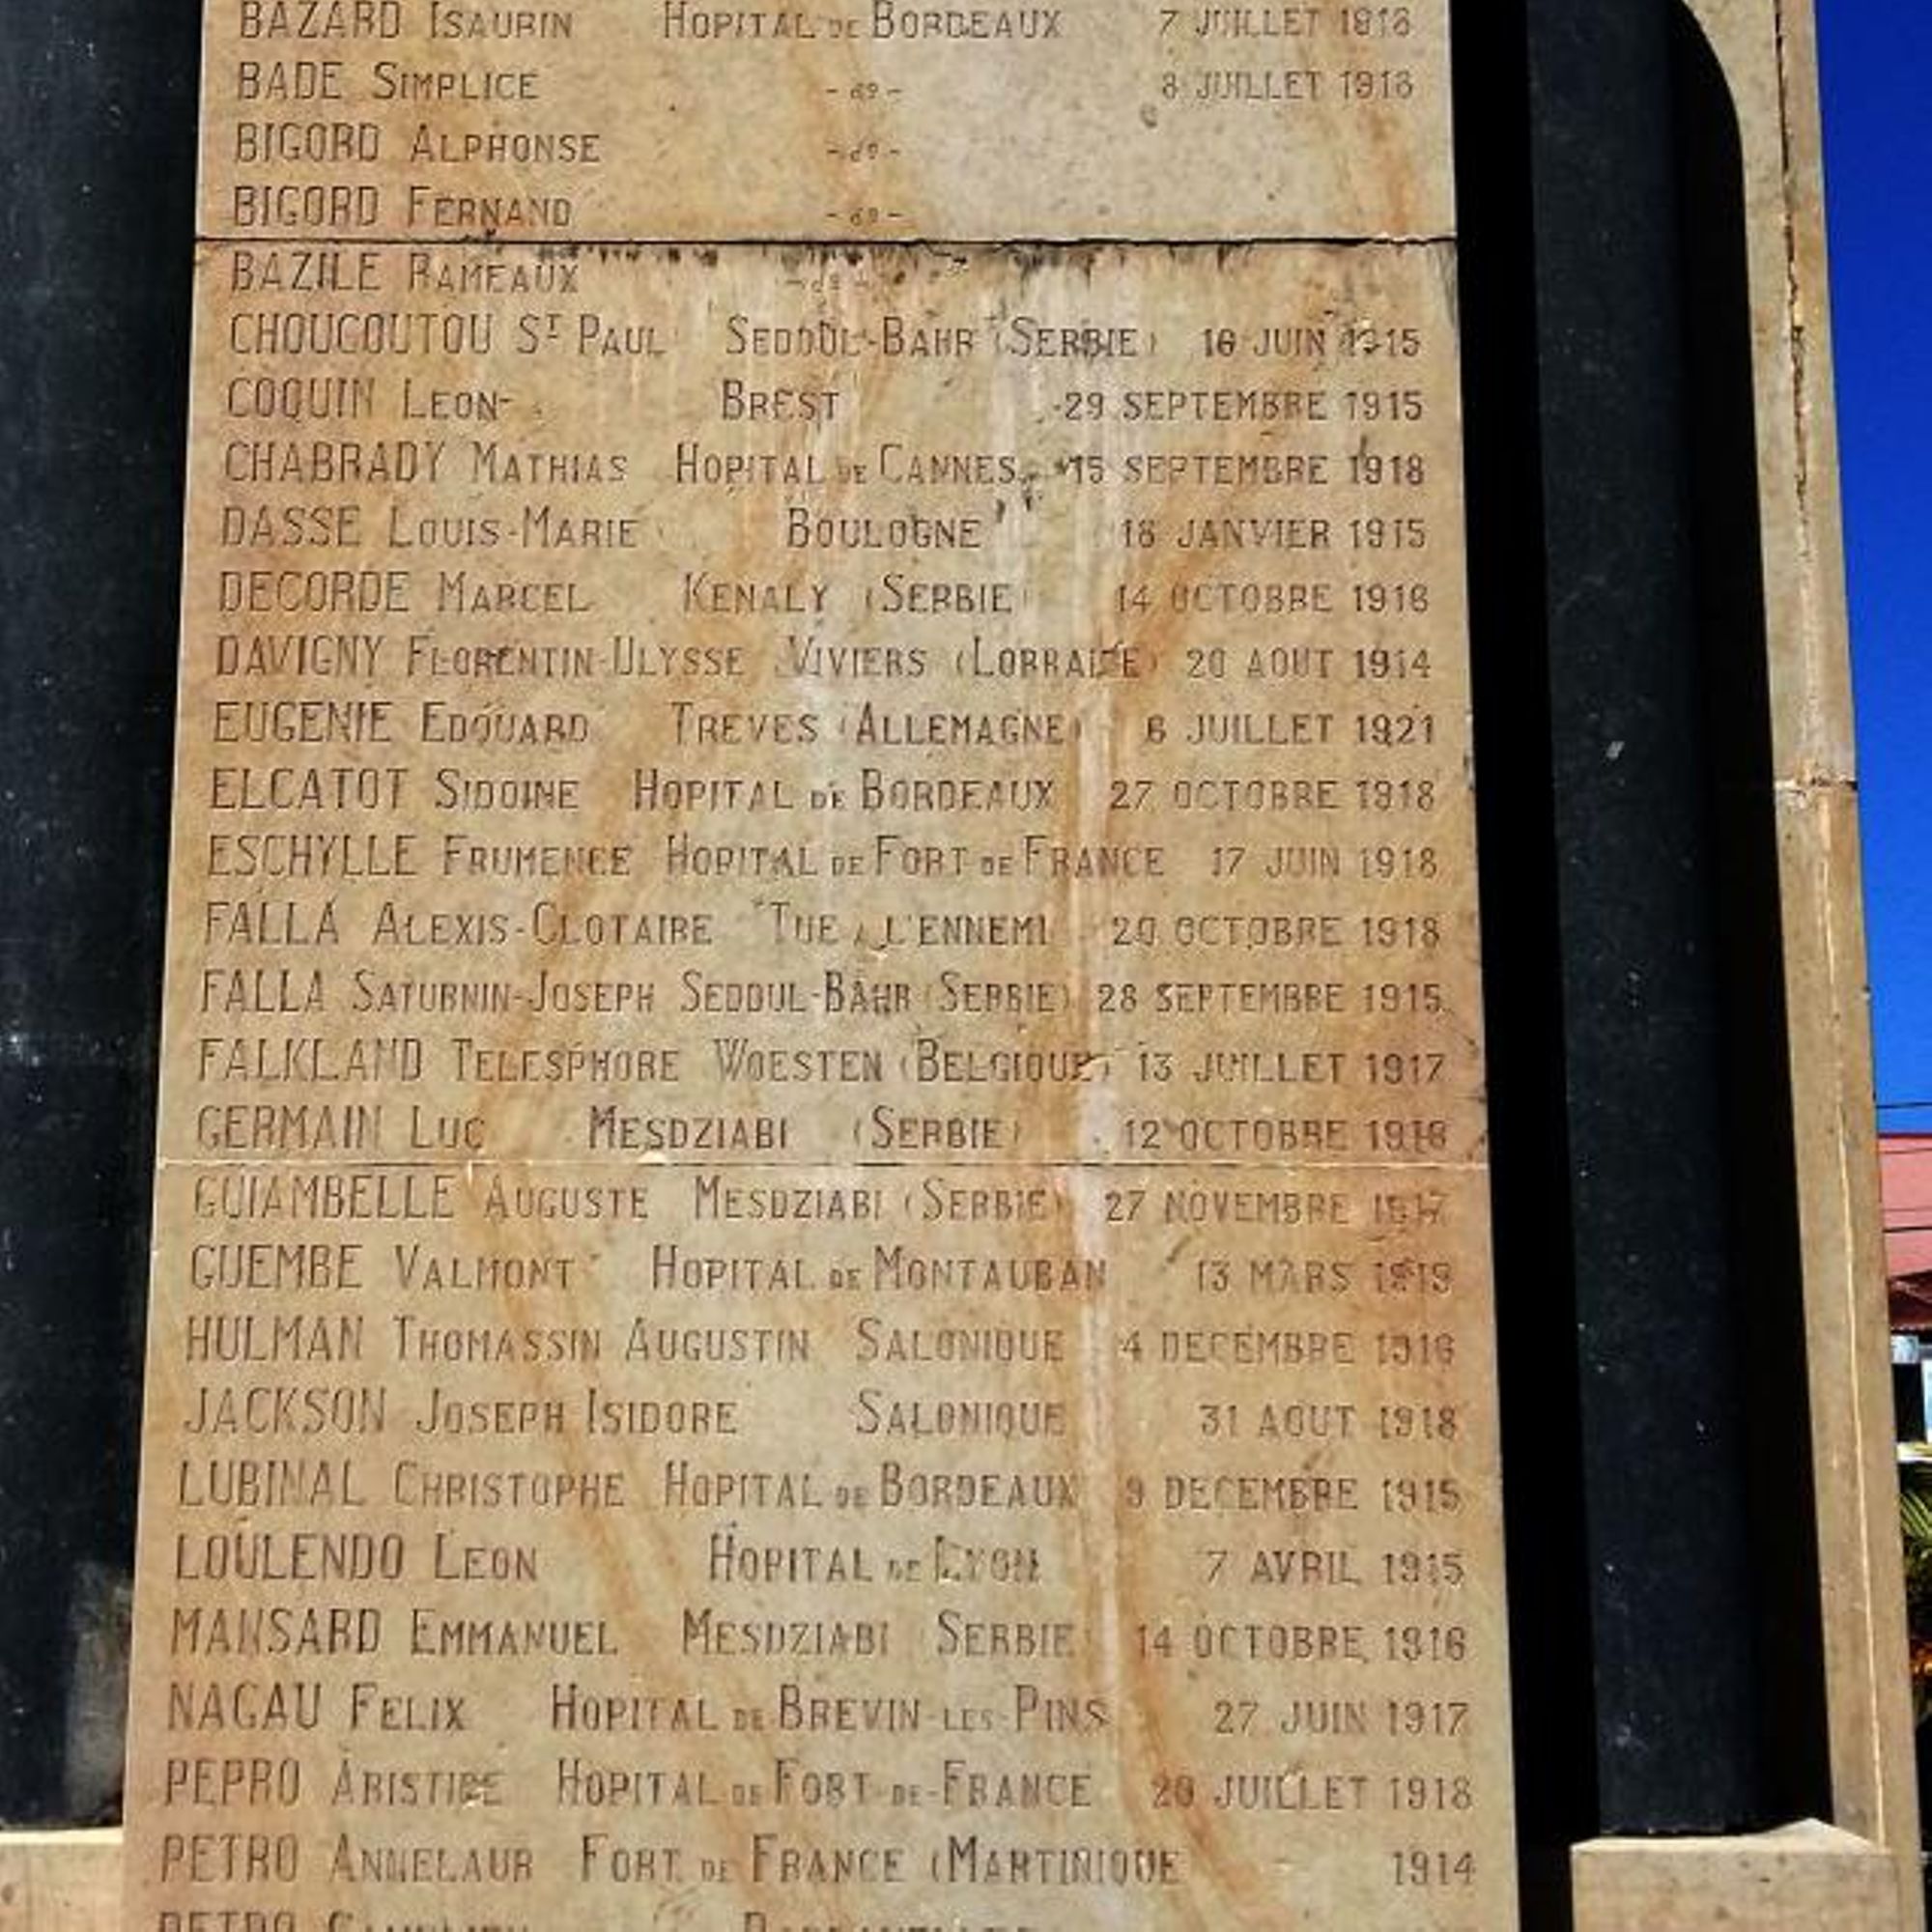 BAZARD ISAURIN HOPITAL DE BORDEAUX 7 JUILLET 1918
BADE SIMPLICE - do - 8 JUILLET 1918
BIGORD ALPHONSE - do -
BIGORD FERNAND - do -
BAZILE RAMEAUX - do -
CHOUCOUTOU ST PAUL SEDDUL-BAHR (SERBIE) 16 JUIN 1915
COQUIN LEON BREST 29 SEPTEMBRE 1915
CHABRADY MATHIAS HOPITAL DE CANNES 15 SEPTEMBRE 1918
DASSE LOUIS-MARIE BOULOGNE 18 JANVIER 1915
DECORDE MARCEL KENALY (SERBIE) 14 OCTOBRE 1916
DAVIGNY FLORENTIN-ULYSSE VIVIERS (LORRAINE) 20 AOUT 1914
EUGENIE EDOUARD TREVES (ALLEMAGNE) 6 JUILLET 1921
ELCATOT SIDOINE HOPITAL DE BORDEAUX 27 OCTOBRE 1918
ESCHYLLE FRUMENCE HOPITAL DE FORT DE FRANCE 17 JUIN 1918
FALLA ALEXIS-CLOTAIRE TUE A L'ENNEMI 20 OCTOBRE 1918
FALLA SATURNIN-JOSEPH SEDDUL-BAHR (SERBIE) 28 SEPTEMBRE 1915
FALKLAND TELESPHORE WOESTEN (BELGIQUE) 13 JUILLET 1917
GERMAIN LUC MESDZIABI (SERBIE) 12 OCTOBRE 1916
GUIAMBELLE AUGUSTE MESDZIABI (SERBIE) 27 NOVEMBRE 1917
GUEMBE VALMONT HOPITAL DE MONTAUBAN 13 MARS 1919
HULMAN THOMASSIN AUGUSTIN SALONIQUE 4 DECEMBRE 1916
JACKSON JOSEPH ISIDORE SALONIQUE 31 AOUT 1918
LUBINAL CHRISTOPHE HOPITAL DE BORDEAUX 9 DECEMBRE 1915
LOULENDO LEON HOPITAL DE LYON 7 AVRIL 1915
MANSARD EMMANUEL MESDZIABI SERBIE 14 OCTOBRE 1916
NAGAU FELIX HOPITAL DE BREVIN-LES-PINS 27 JUIN 1917
PEPRO ARISTIDE HOPITAL DE FORT-DE-FRANCE 20 JUILLET 1918
PETRO ANNELAUR FORT DE FRANCE (MARTINIQUE 1914
PETRO